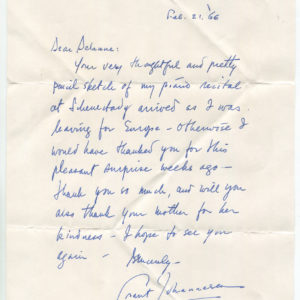 Feb. 21, '66
Dear Adrianne:
Your very thoughtful and pretty
pencil sketch of my piano recital
at Schenectady arrived as I was
leaving for Europe - otherwise I
would have thanked you for this
pleasant surprise weeks ago -
thank you so much, and will you
also thank your mother for her
kindness - I hope to see you
again - Sincerely -
Grant Johannesen